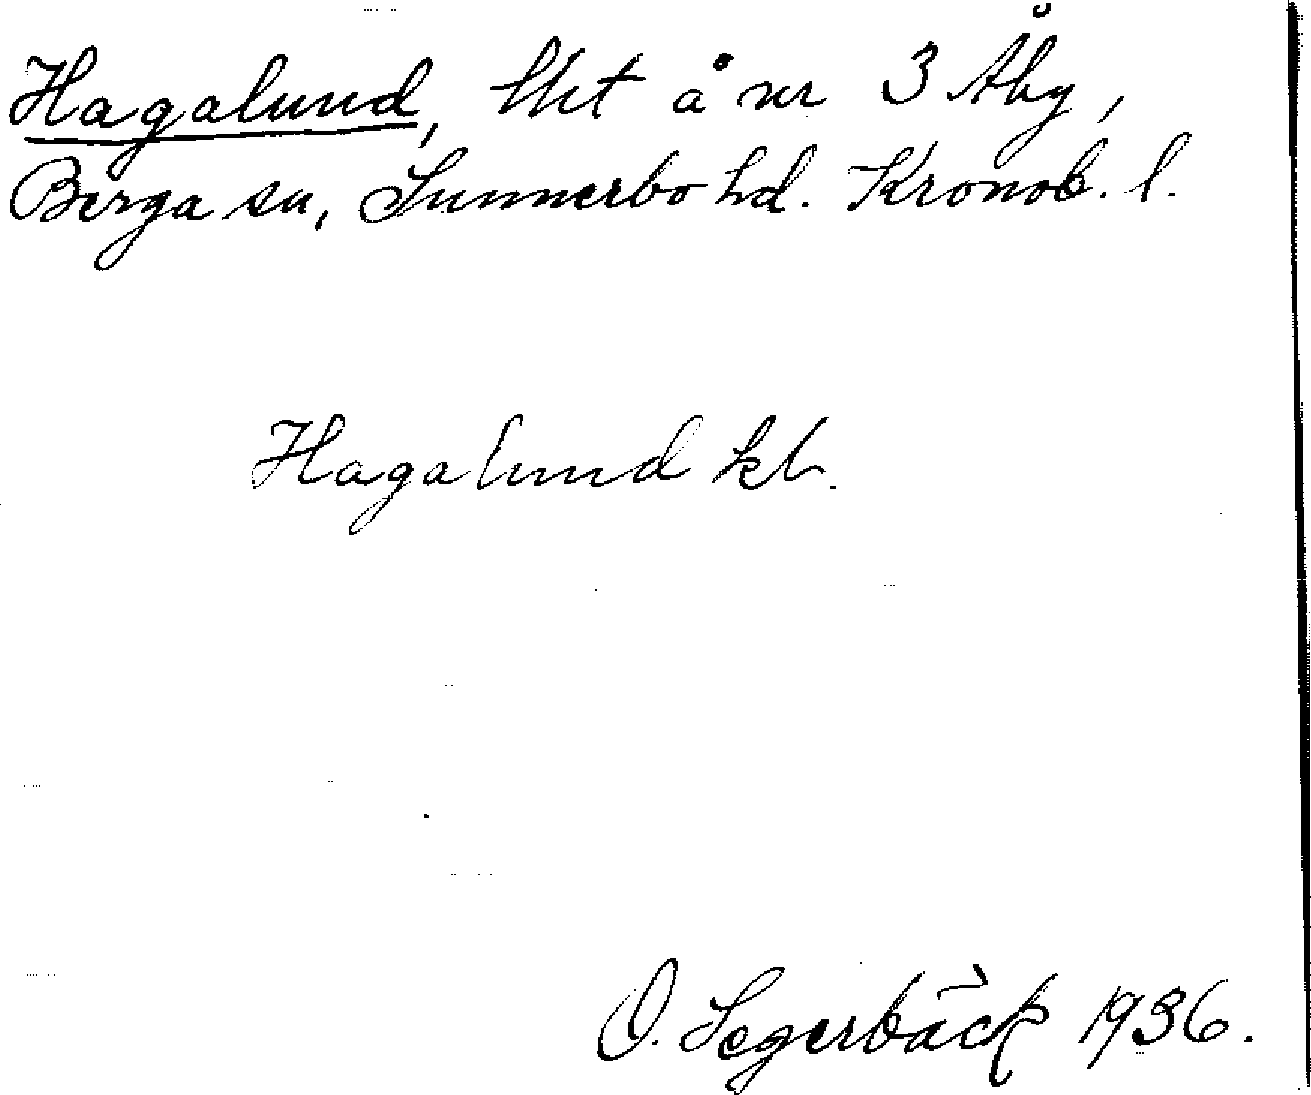 Hagalund, lht å nr 3 Åby,
Berga sn, Sunnerbo hd. Kronob. l.
Hagalund kb.
O. Segerbäck 1936.